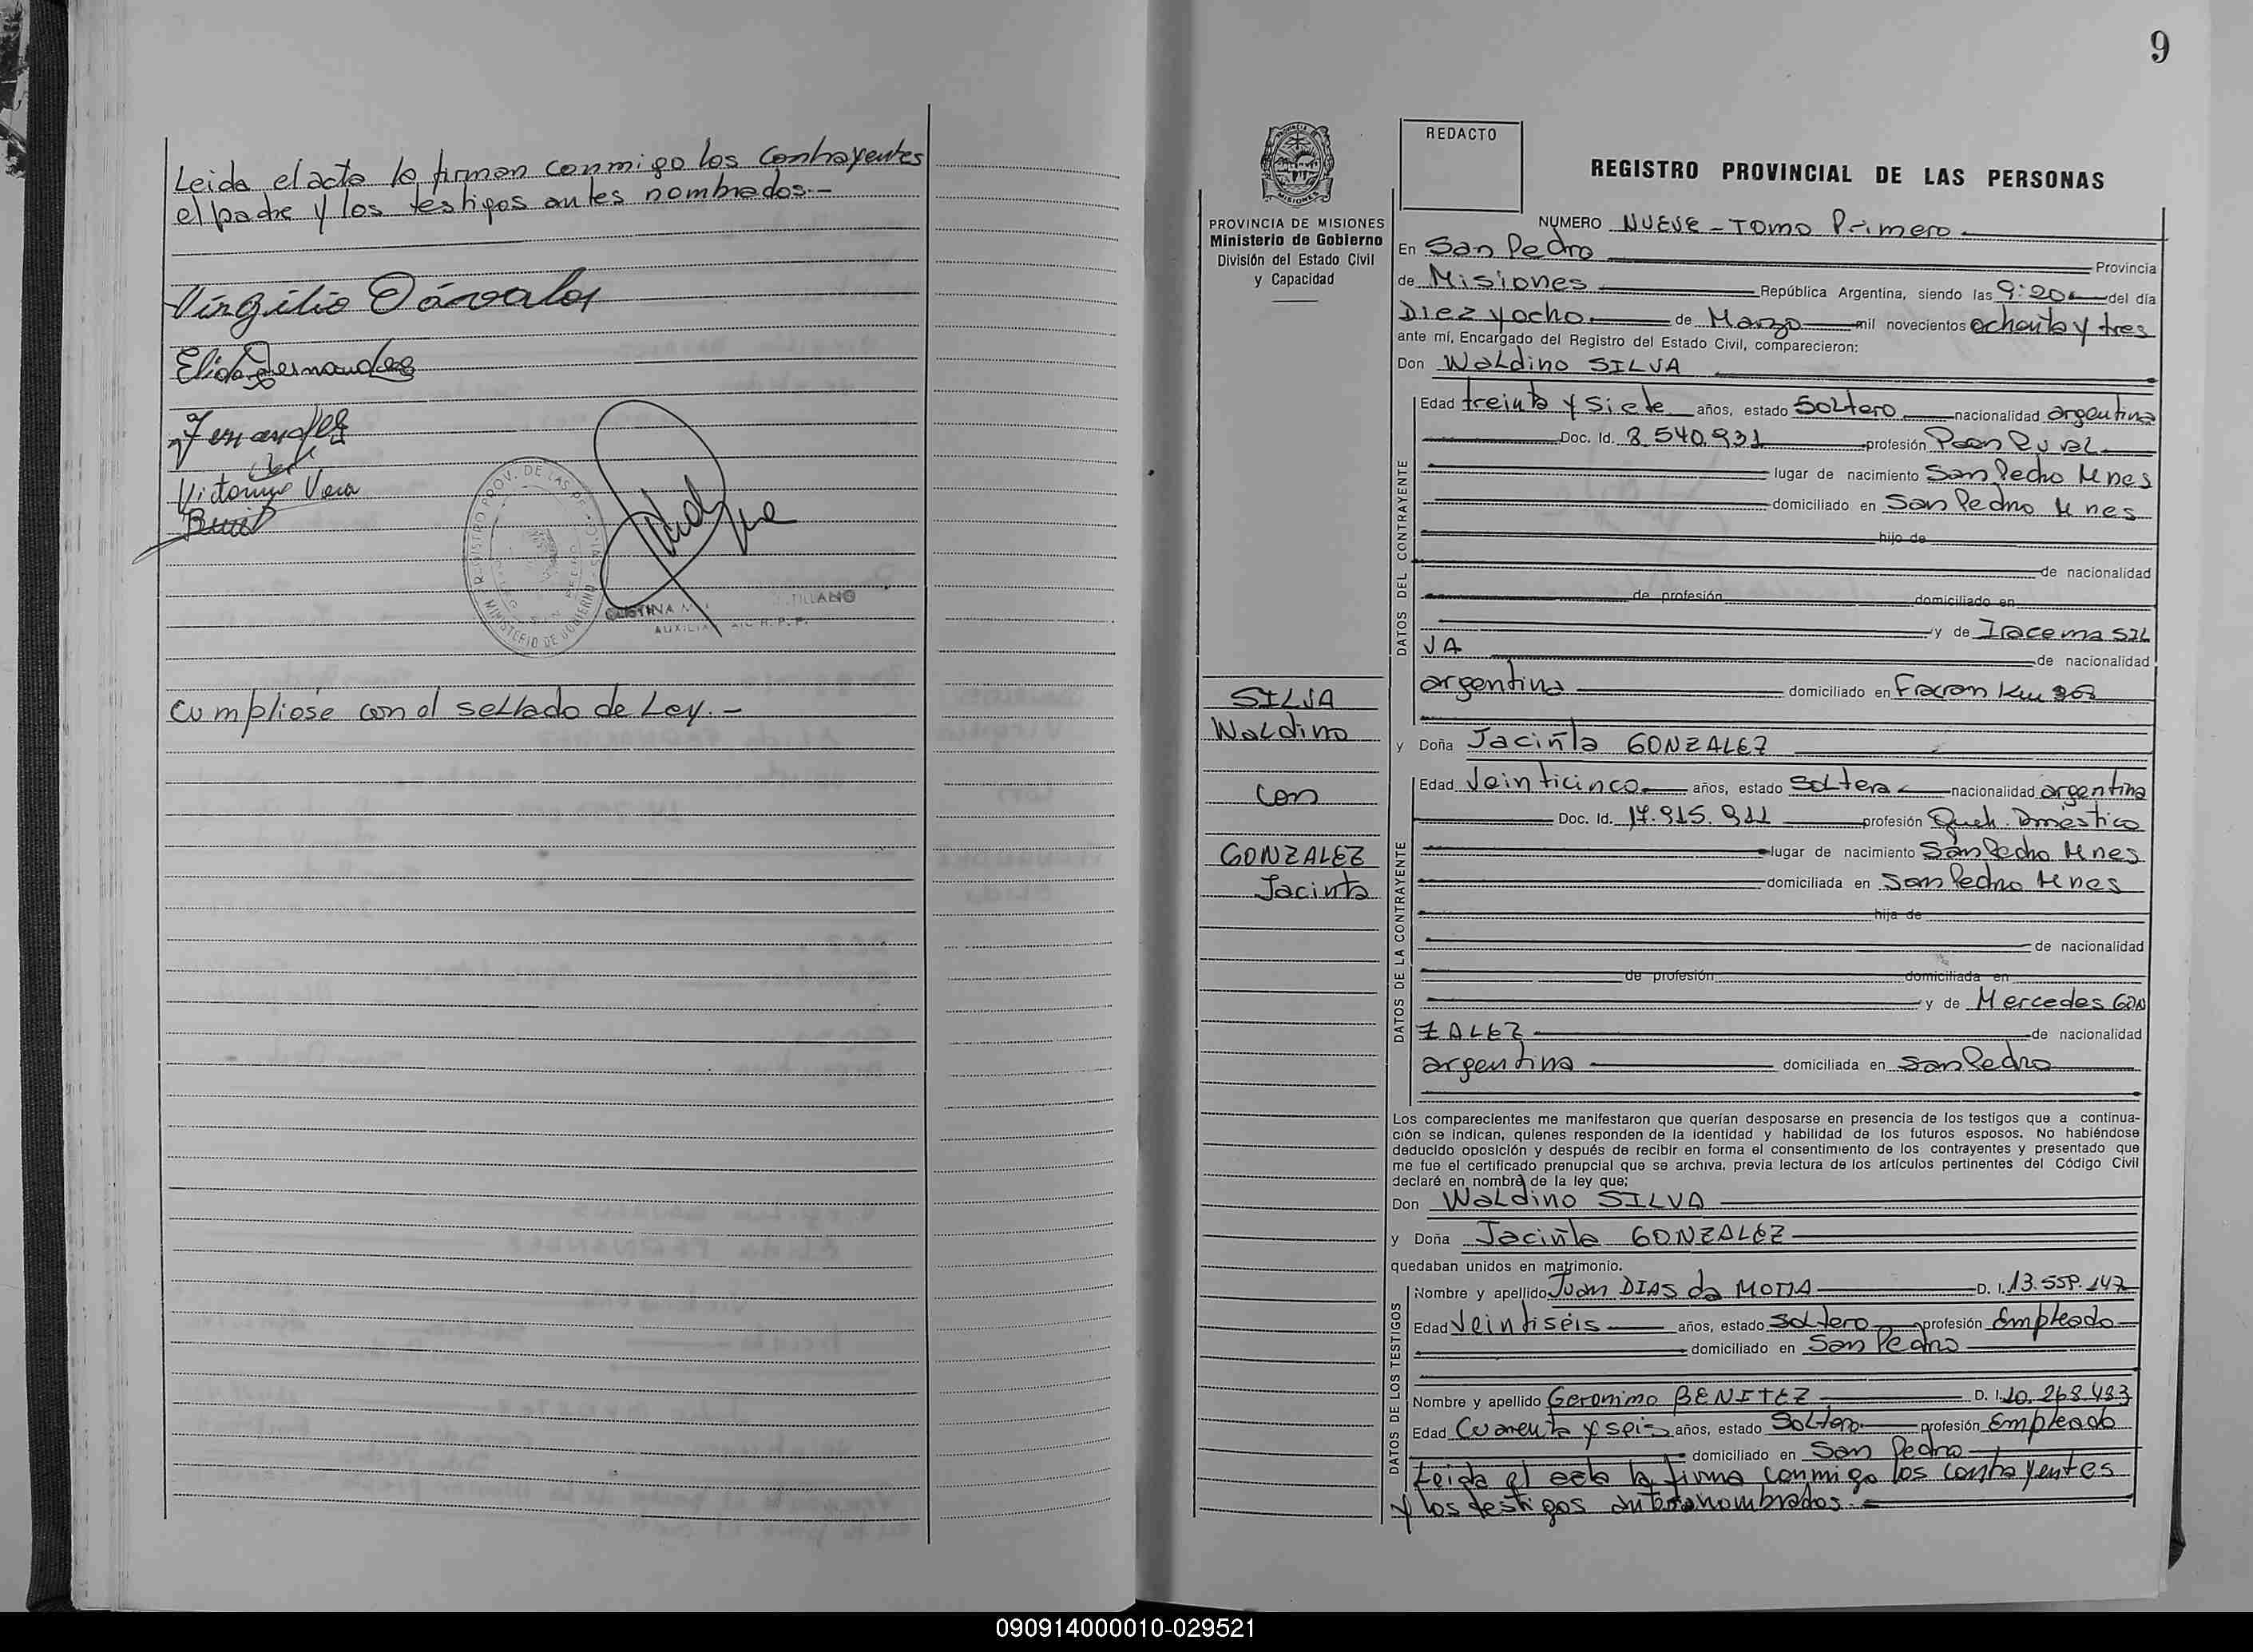 Leida el acta la firman conmigo los contrayentes
el padre y los testigos antes nombrados.-
Virgilio Dávalos
Elida Fernandez
Fernandez
Victorino Vera
REGISTRO PROV. DE LAS
MINISTERIO DE GOBIERNO
AUXILIAR
Cumpliose con el sellado de Ley.-
9
PROVINCIA DE MISIONES
Ministerio de Gobierno
División del Estado Civil
y Capacidad
SILVA
Waldino
con
GONZALEZ
Jacinta
REDACTO
REGISTRO PROVINCIAL DE LAS PERSONAS
NUMERO NUEVE - TOMO Primero
En San Pedro Provincia
de Misiones República Argentina, siendo las 9:20 del día
Diez y ocho de Marzo mil novecientos ochenta y tres
ante mí, Encargado del Registro del Estado Civil, comparecieron:
Don Waldino SILVA
DATOS DEL CONTRAYENTE
Edad treinta y siete años, estado soltero nacionalidad argentina
Doc. Id. 8.540.931 profesión Peon Rural
lugar de nacimiento San Pedro Mnes
domiciliado en San Pedro Mnes
hijo de
de nacionalidad
de profesión domiciliado en
y de Iracema SIL
VA de nacionalidad
argentina domiciliado en Fracran Km
y Doña Jacinta GONZALEZ
DATOS DE LA CONTRAYENTE
Edad Veinticinco años, estado soltera nacionalidad argentina
Doc. Id. 17.915.911 profesión Queh. Domestico
lugar de nacimiento San Pedro Mnes
domiciliada en San Pedro Mnes
hija de
de nacionalidad
de profesión domiciliada en
y de Mercedes GON
ZALEZ de nacionalidad
argentina domiciliada en San Pedro
Los comparecientes me manifestaron que querían desposarse en presencia de los testigos que a continua-
ción se indican, quienes responden de la identidad y habilidad de los futuros esposos. No habiéndose
deducido oposición y después de recibir en forma el consentimiento de los contrayentes y presentado que
me fue el certificado prenupcial que se archiva, previa lectura de los artículos pertinentes del Código Civil
declaré en nombre de la ley que;
Don Waldino SILVA
y Doña Jacinta GONZALEZ
quedaban unidos en matrimonio.
DATOS DE LOS TESTIGOS
Nombre y apellido Juan DIAS da MOTTA D. I. 13.558.147
Edad Veintiseis años, estado Soltero profesión Empleado
domiciliado en San Pedro
Nombre y apellido Geronimo BENITEZ D. I. 10.268.483
Edad Cuarenta y seis años, estado Soltero profesión Empleado
domiciliado en San Pedro
Leida el acta la firma conmigo los contrayentes
y los testigos antes nombrados.-
090914000010-029521